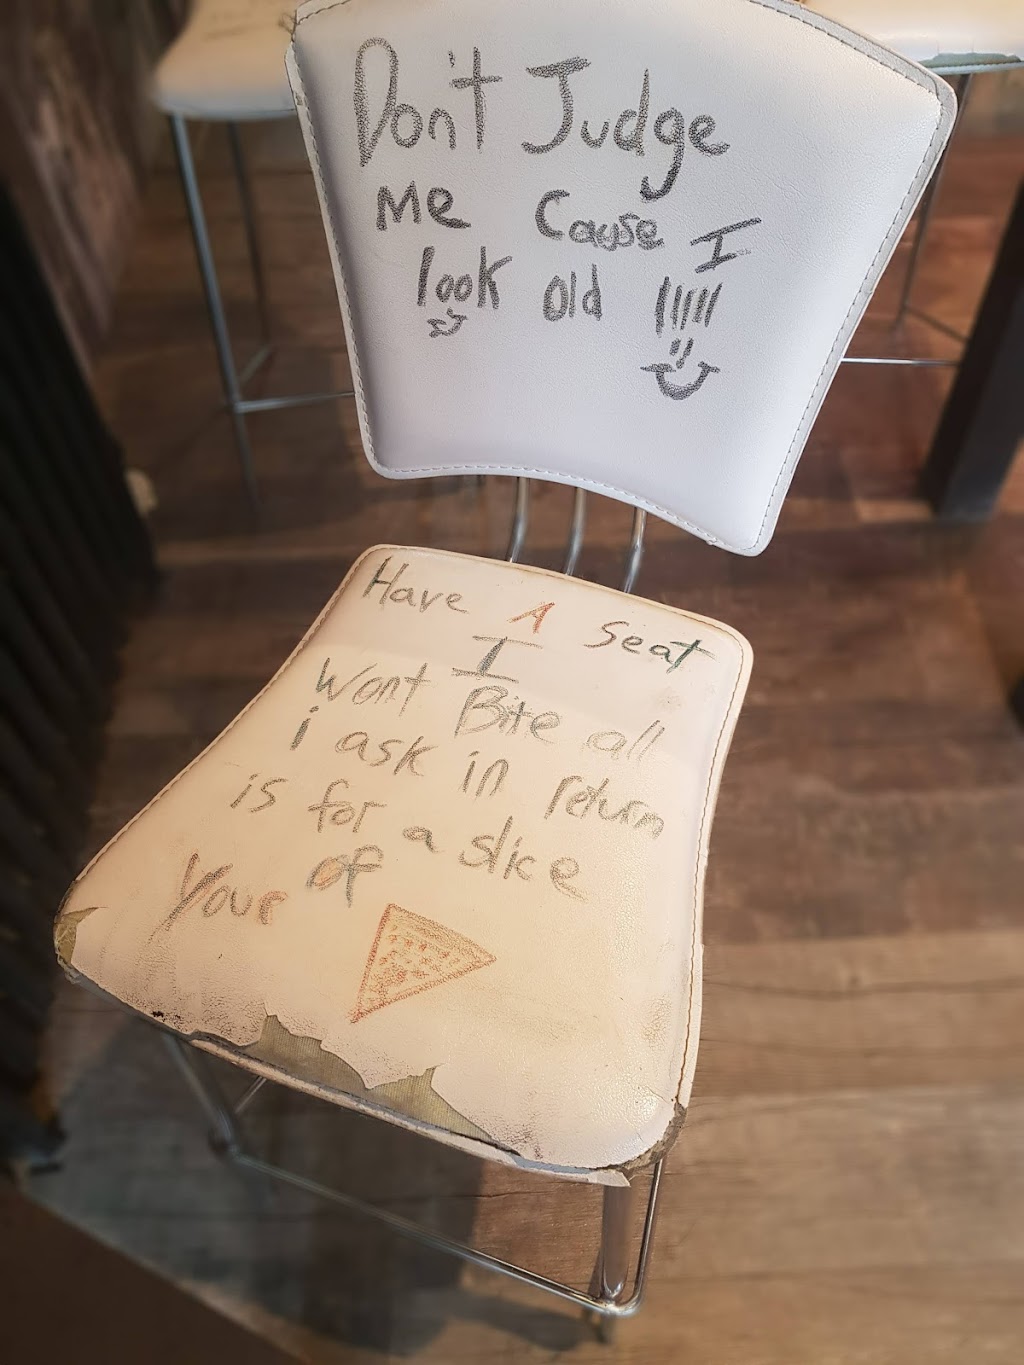 Don't Judge
Me Cause I
look old !!!!!
Have A Seat
I
Wont Bite all
i ask in return
is for a slice
of
Your